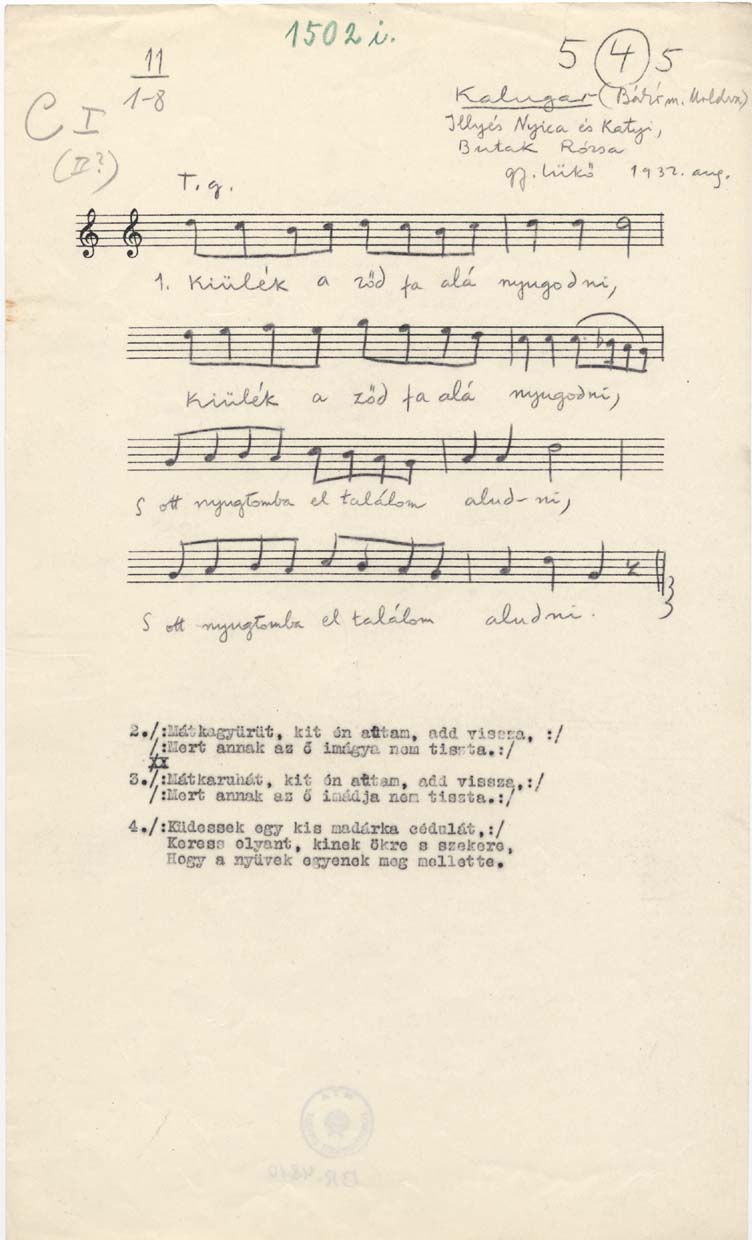 1502 i.
11
1-8
5 4 5
C I
(II?)
Kalugar (Bákó m. Moldva)
Illyés Nyica és Katyi,
Butak Rózsa
gy. Lükő 1932. aug.
T. g.
1. Kiülék a ződ fa alá nyugodni,
Kiülék a ződ fa alá nyugodni,
S ott nyugtomba el találom alud-ni,
S ott nyugtomba el találom aludni.
2./:Mátkagyürüt, kit én attam, add vissza, :/
/:Mert annak az ő imágya nem tiszta.:/
3./:Mátkaruhát, kit én attam, add vissza,:/
/:Mert annak az ő imádja nem tiszta.:/
4./:Küdessek egy kis madárka cédulát,:/
Keress olyant, kinek ökre s szekere,
Hogy a nyüvek egyenek meg mellette.